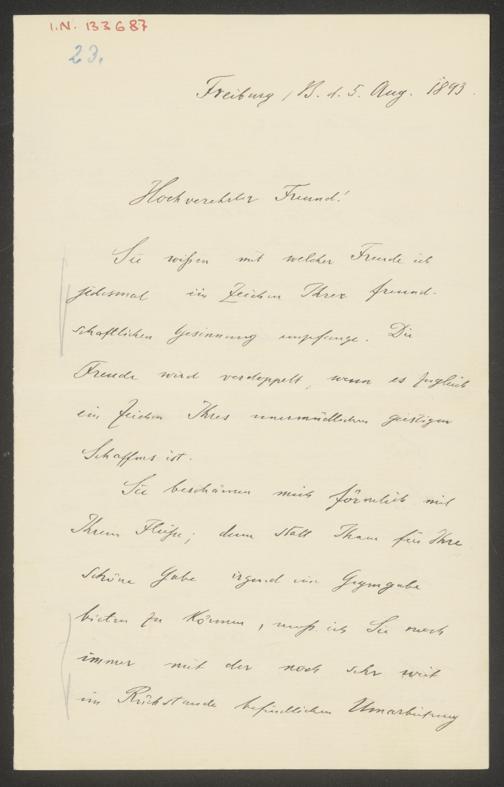 I.N. 133687
23.
Freiburg /B. d. 5. Aug. 1893.
Hochverehrter Freund!
Sie wißen mit welcher Freude ich
jedesmal ein Zeichen Ihrer freund-
schaftlichen Gesinnung empfange. Die
Freude wird verdoppelt, wenn es zugleich
ein Zeichen Ihres unermüdlichen geistigen
Schaffens ist.
Sie beschämen mich förmlich mit
Ihrem Fleiße; denn statt Ihnen für Ihre
schöne Gabe irgend eine Gegengabe
bieten zu können, muß ich Sie noch
immer mit der noch sehr weit
im Rückstande befindlichen Umarbeitung